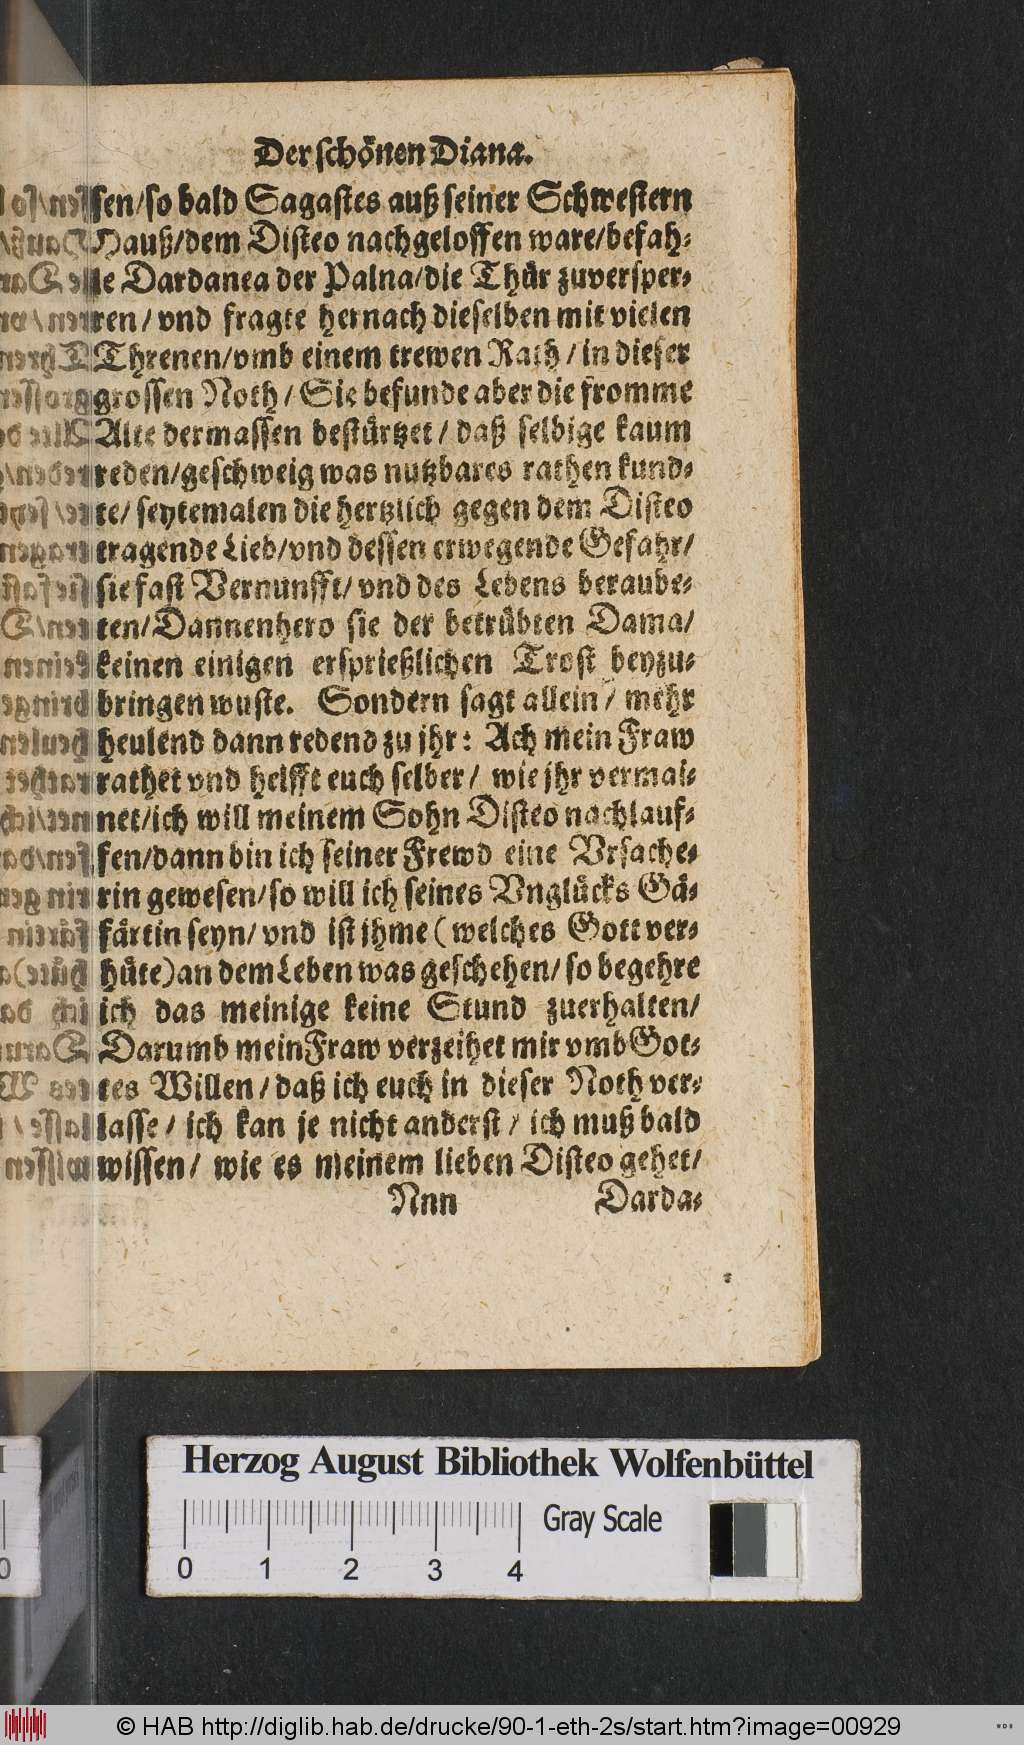 Der schönen Diana.
sen/so bald Sagastes auß seiner Schwestern
Hauß/dem Disteo nachgeloffen ware/befah-
le Dardanea der Palna/die Thür zuversper-
ren/vnd fragte hernach dieselben mit vielen
Threnen/vmb einem trewen Rath/in dieser
grossen Noth/Sie befunde aber die fromme
Alte dermassen bestürtzet/daß selbige kaum
reden/geschweig was nutzbares rathen kund-
te/seytemalen die hertzlich gegen dem Disteo
tragende Lieb/vnd dessen erwegende Gefahr/
sie fast Vernunfft/vnd des Lebens beraube-
ten/Dannenhero sie der betrübten Dama/
keinen einigen ersprießlichen Trost beyzu-
bringen wuste. Sondern sagt allein/mehr
heulend dann redend zu jhr: Ach mein Fraw
rathet vnd helfft euch selber/wie jhr vermai-
net/ich will meinem Sohn Disteo nachlauf-
fen/dann bin ich seiner Frewd eine Vrsache-
rin gewesen/so will ich seines Vnglücks Gä-
färtin seyn/vnd ist jhme (welches Gott ver-
hüte) an dem Leben was geschehen/so begehre
ich das meinige keine Stund zuerhalten/
Darumb mein Fraw verzeihet mir vmb Got-
tes Willen/daß ich euch in dieser Noth ver-
lasse/ich kan je nicht anderst/ich muß bald
wissen/wie es meinem lieben Disteo gehet/
Nnn Darda-
Herzog August Bibliothek Wolfenbüttel
0 1 2 3 4 Gray Scale
© HAB http://diglib.hab.de/drucke/90-1-eth-2s/start.htm?image=00929